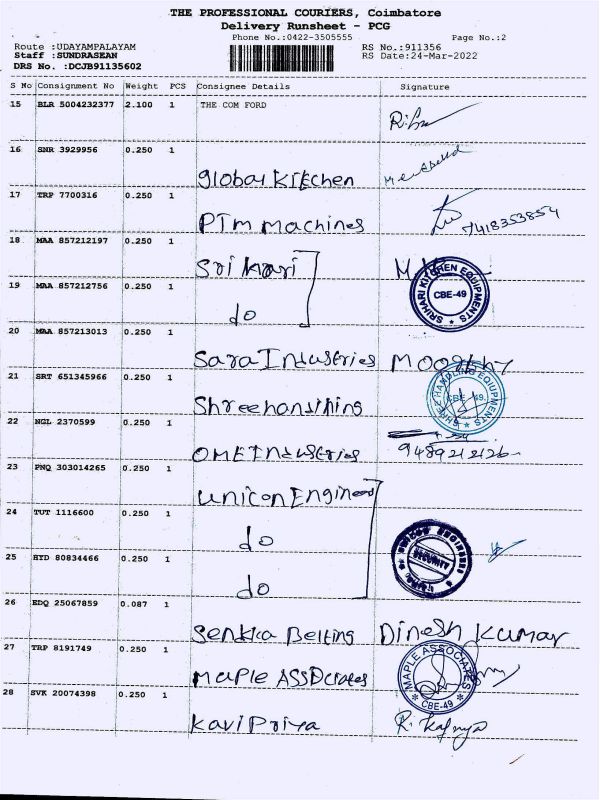 THE PROFESSIONAL COURIERS, Coimbatore
Delivery Runsheet - PCG
Phone No.:0422-3505555 Page No.:2
Route :UDAYAMPALAYAM RS No.:911356
Staff :SUNDRASEAN RS Date:24-Mar-2022
DRS No. :DCJB91135602
S No Consignment No Weight PCS Consignee Details Signature
15 BLR 5004232377 2.100 1 THE COM FORD
16 SNR 3929956 0.250 1
Global Kitchen
17 TRP 7700316 0.250 1
PTM Machines 7418353854
18 MAA 857212197 0.250 1
Sri Hari
SRIHARI KITCHEN EQUIPMENTS CBE-49
19 MAA 857212756 0.250 1
do
20 MAA 857213013 0.250 1
Sara Industries Moorthy
21 SRT 651345966 0.250 1
CBE-49. EQUIPMENTS
22 NGL 2370599 0.250 1
OME Industries 9489212126
23 PNQ 303014265 0.250 1
Unicon Engineers
24 TUT 1116600 0.250 1
do
SECURITY
25 HYD 80834466 0.250 1
do
26 EDQ 25067859 0.087 1
Senkka Belting Dinesh Kumar
27 TRP 8191749 0.250 1
Maple Associates
MAPLE ASSOCIATES CBE-49
28 SVK 20074398 0.250 1
Kavi Priya